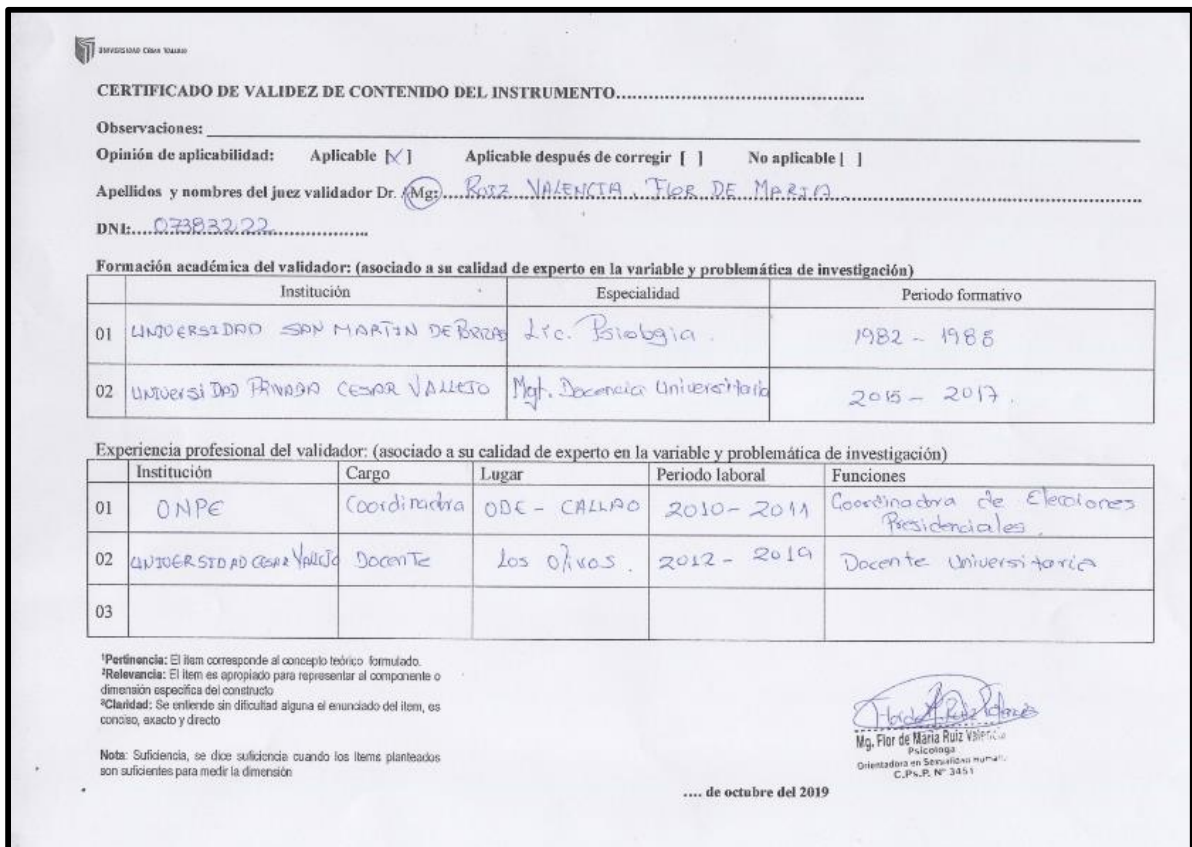 UNIVERSIDAD CESAR VALLEJO
CERTIFICADO DE VALIDEZ DE CONTENIDO DEL INSTRUMENTO..........................................................
Observaciones:
Opinión de aplicabilidad: Aplicable [X] Aplicable después de corregir [ ] No aplicable [ ]
Apellidos y nombres del juez validador Dr. / Mg: RUIZ VALENCIA, FLOR DE MARIA
DNI: 07383222
Formación académica del validador: (asociado a su calidad de experto en la variable y problemática de investigación)
Institución Especialidad Periodo formativo
01 UNIVERSIDAD SAN MARTIN DE Lic. Psicología. 1982 - 1988
02 UNIVERSIDAD PRIVADA CESAR VALLEJO Mgt. Docencia Universitaria 2015 - 2017.
Experiencia profesional del validador: (asociado a su calidad de experto en la variable y problemática de investigación)
Institución Cargo Lugar Periodo laboral Funciones
01 ONPE Coordinadora ODE - CALLAO 2010 - 2011 Coordinadora de Elecciones
Presidenciales
02 UNIVERSIDAD CESAR VALLEJO Docente Los Olivos. 2012 - 2019 Docente Universitaria
03
¹Pertinencia: El ítem corresponde al concepto teórico formulado.
²Relevancia: El ítem es apropiado para representar al componente o
dimensión específica del constructo
³Claridad: Se entiende sin dificultad alguna el enunciado del ítem, es
conciso, exacto y directo
Nota: Suficiencia, se dice suficiencia cuando los ítems planteados
son suficientes para medir la dimensión
Mg. Flor de María Ruiz Valencia
Psicologa
Orientadora en Sexualidad Humana
C.Ps.P. N° 3451
.... de octubre del 2019